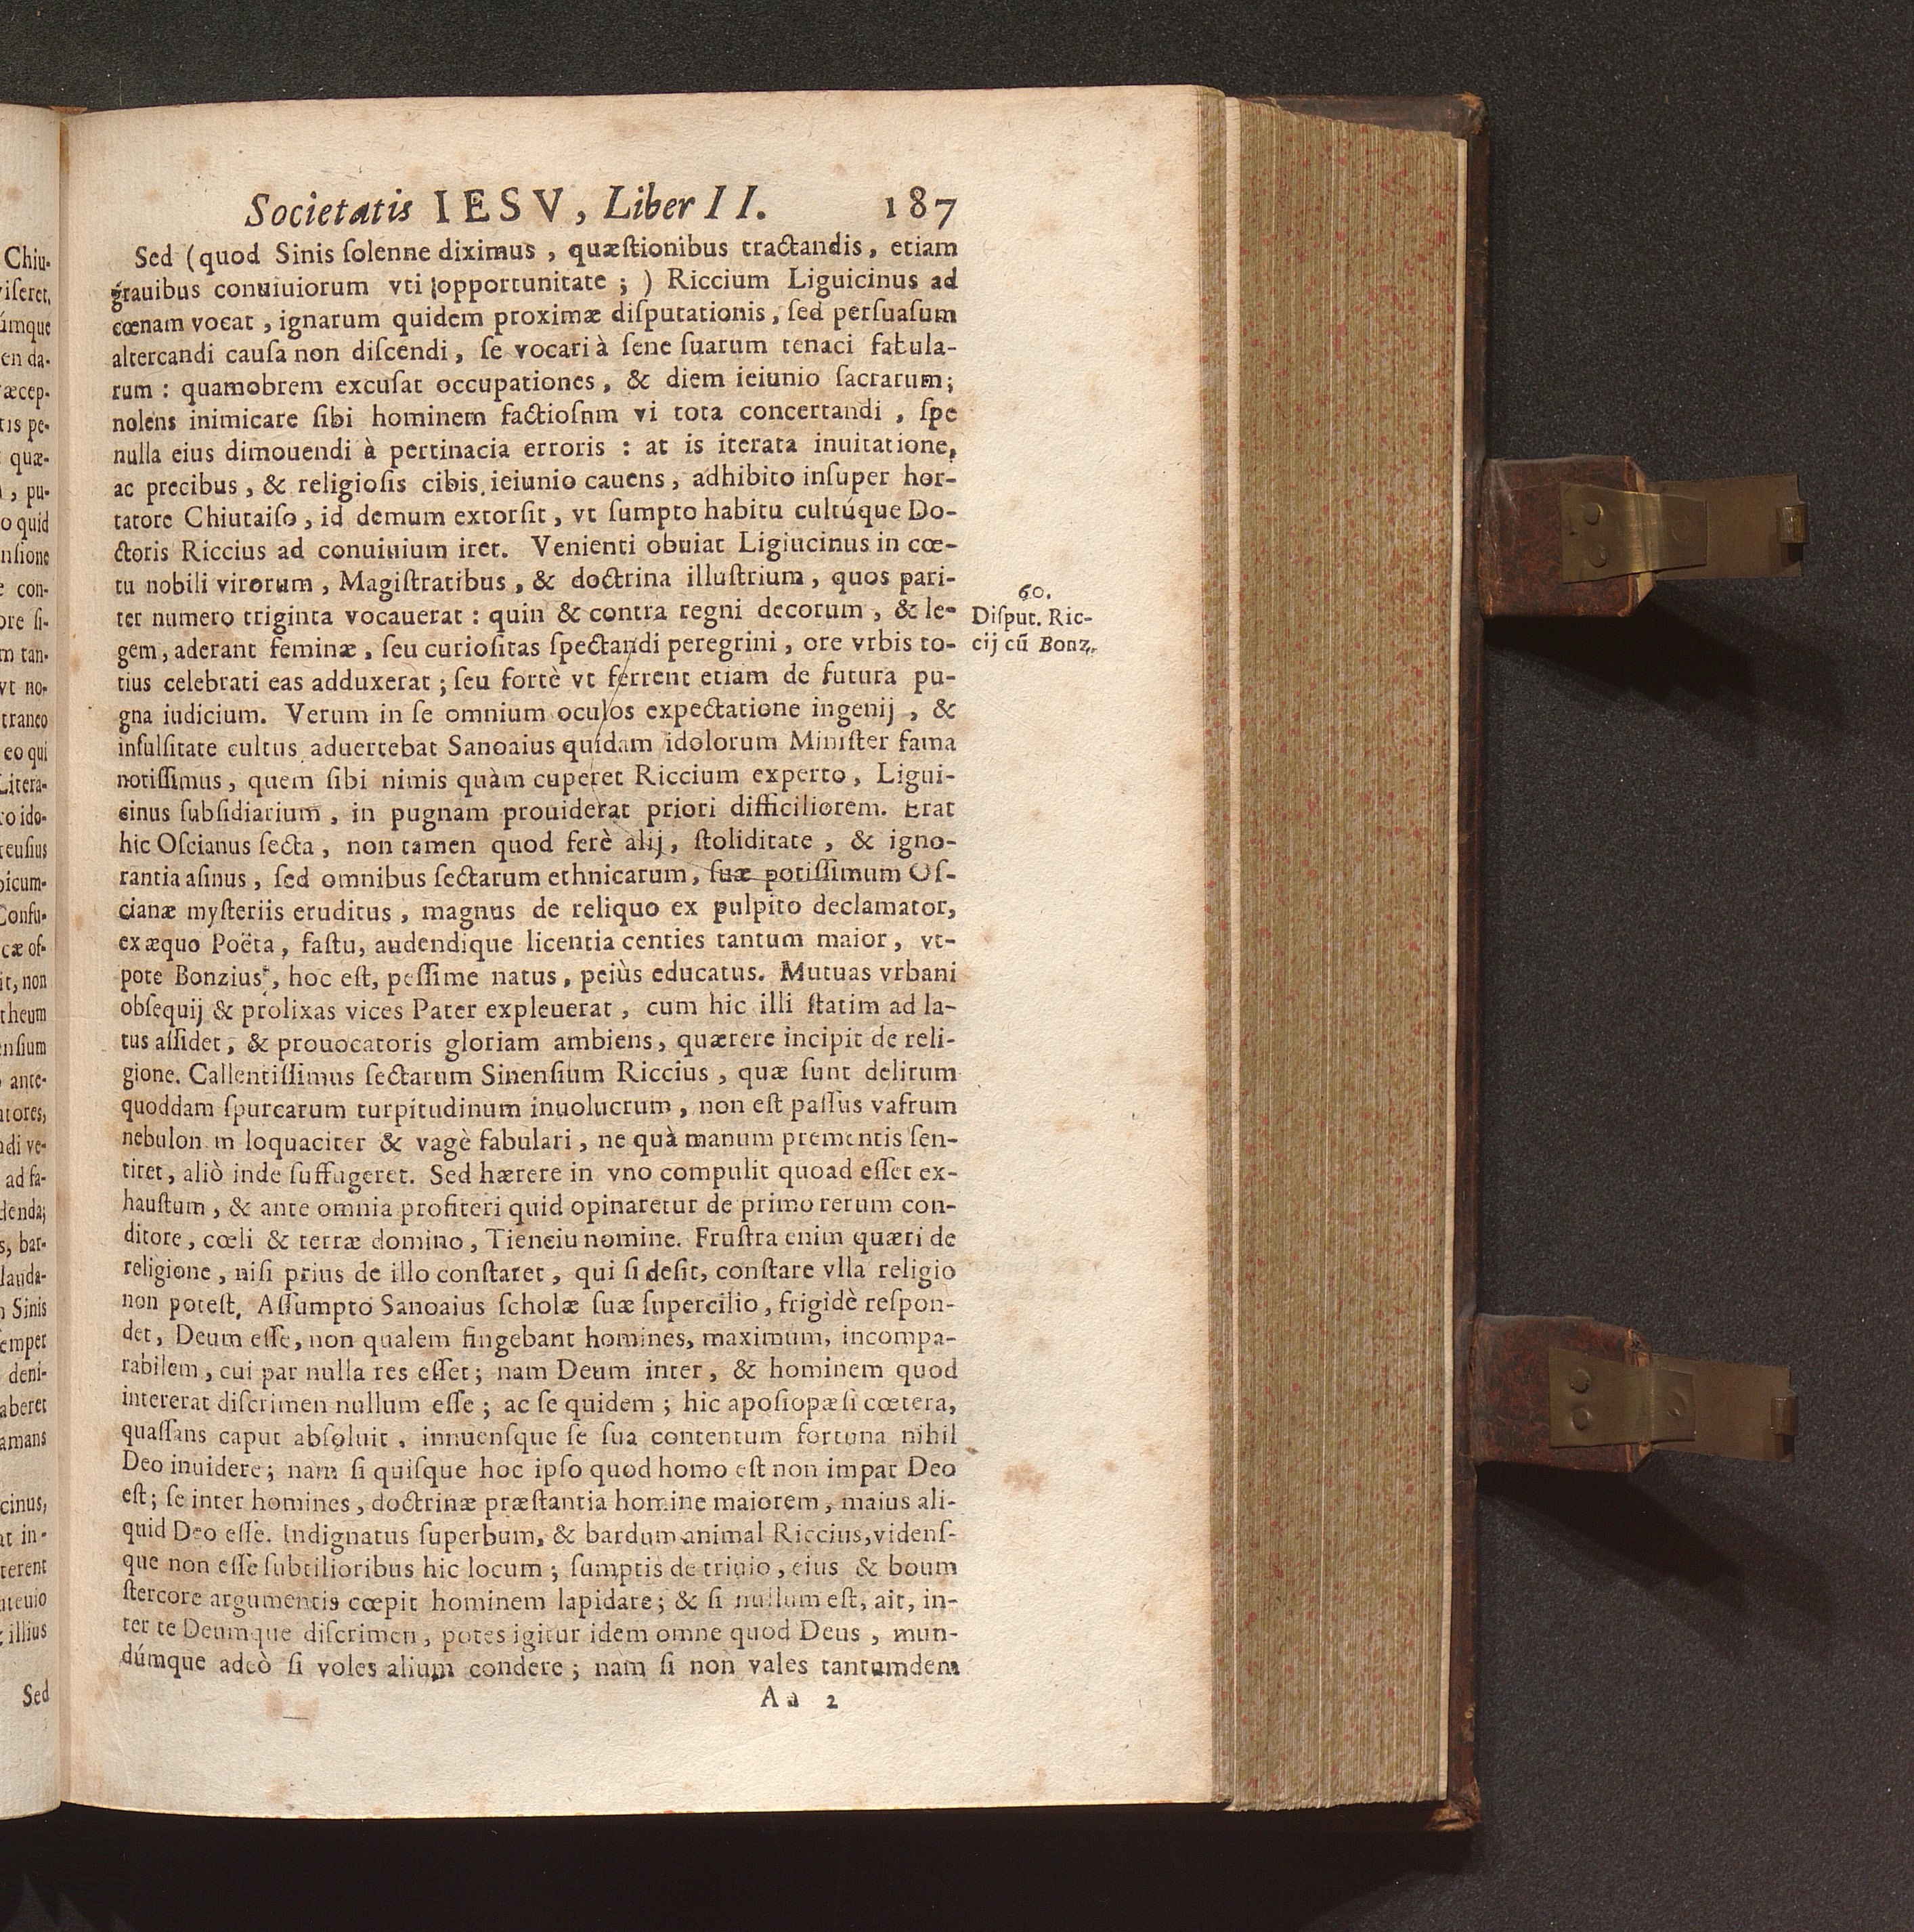 Societatis IESV, Liber II. 187
Sed (quod Sinis ſolenne diximus, quæſtionibus tractandis, etiam
grauibus conuiuiorum vti opportunitate; ) Riccium Liguicinus ad
cœnam vocat, ignarum quidem proximæ diſputationis, ſed perſuaſum
altercandi cauſa non diſcendi, ſe vocari à ſene ſuarum tenaci fabula-
rum: quamobrem excuſat occupationes, & diem ieiunio ſacrarum;
nolens inimicare ſibi hominem factioſnm vi tota concertandi, ſpe
nulla eius dimouendi à pertinacia erroris: at is iterata inuitatione,
ac precibus, & religioſis cibis ieiunio cauens, adhibito inſuper hor-
tatore Chiutaiſo, id demum extorſit, vt ſumpto habitu cultúque Do-
ctoris Riccius ad conuiuium iret. Venienti obuiat Ligiucinus in cœ-
tu nobili virorum, Magiſtratibus, & doctrina illuſtrium, quos pari-
ter numero triginta vocauerat: quin & contra regni decorum, & le-
gem, aderant feminæ, ſeu curioſitas ſpectandi peregrini, ore vrbis to-
tius celebrati eas adduxerat; ſeu fortè vt ferrent etiam de futura pu-
gna iudicium. Verum in ſe omnium oculos expectatione ingenij, &
inſulſitate cultus aduertebat Sanoaius quidam idolorum Miniſter fama
notiſſimus, quem ſibi nimis quàm cuperet Riccium experto, Ligui-
cinus ſubſidiarium, in pugnam prouiderat priori difficiliorem. Erat
hic Oſcianus ſecta, non tamen quod ferè alij, ſtoliditate, & igno-
rantia aſinus, ſed omnibus ſectarum ethnicarum, ſuæ potiſſimum Oſ-
cianæ myſteriis eruditus, magnus de reliquo ex pulpito declamator,
exæquo Poëta, faſtu, audendique licentia centies tantum maior, vt-
pote Bonzius, hoc eſt, peſſime natus, peiùs educatus. Mutuas vrbani
obſequij & prolixas vices Pater expleuerat, cum hic illi ſtatim ad la-
tus aſſidet, & prouocatoris gloriam ambiens, quærere incipit de reli-
gione. Callentiſſimus ſectarum Sinenſium Riccius, quæ ſunt delirum
quoddam ſpurcarum turpitudinum inuolucrum, non eſt paſſus vafrum
nebulon m loquaciter & vagè fabulari, ne quà manum prementis ſen-
tiret, aliò inde ſuffugeret. Sed hærere in vno compulit quoad eſſet ex-
hauſtum, & ante omnia profiteri quid opinaretur de primo rerum con-
ditore, cœli & terræ domino, Tienciu nomine. Fruſtra enim quæri de
religione, niſi prius de illo conſtaret, qui ſi deſit, conſtare vlla religio
non poteſt. Aſſumpto Sanoaius ſcholæ ſuæ ſupercilio, frigidè reſpon-
det, Deum eſſe, non qualem fingebant homines, maximum, incompa-
rabilem, cui par nulla res eſſet; nam Deum inter, & hominem quod
intererat diſcrimen nullum eſſe; ac ſe quidem; hic apoſiopæſi cœtera,
quaſſans caput abſoluit, innuenſque ſe ſua contentum fortuna nihil
Deo inuidere; nam ſi quiſque hoc ipſo quod homo eſt non impar Deo
eſt; ſe inter homines, doctrinæ præſtantia homine maiorem, maius ali-
quid Deo eſſe. Indignatus ſuperbum, & bardum animal Riccius, videnſ-
que non eſſe ſubtilioribus hic locum; ſumptis de triuio, eius & boum
ſtercore argumentis cœpit hominem lapidare; & ſi nullum eſt, ait, in-
ter te Deumque diſcrimen, potes igitur idem omne quod Deus, mun-
dúmque adeò ſi voles alium condere; nam ſi non vales tantumdem
Aa 2
60.
Diſput. Ric-
cij cū Bonz.
Chiu-
viſeret,
úmque
en da-
ræcep-
tis pe-
quæ-
, pu-
o quid
nſione
e con-
ore ſi-
m tan-
vt no-
traneo
eo qui
Litera-
ro ido-
teuſius
bicum-
Confu-
cæ of-
it, non
theum
enſium
ante-
ntores,
ndi ve-
ad fa-
denda;
s, bar-
lauda-
n Sinis
ſemper
deni-
aberet
amans
cinus,
at in-
terent
uteuio
illius
Sed